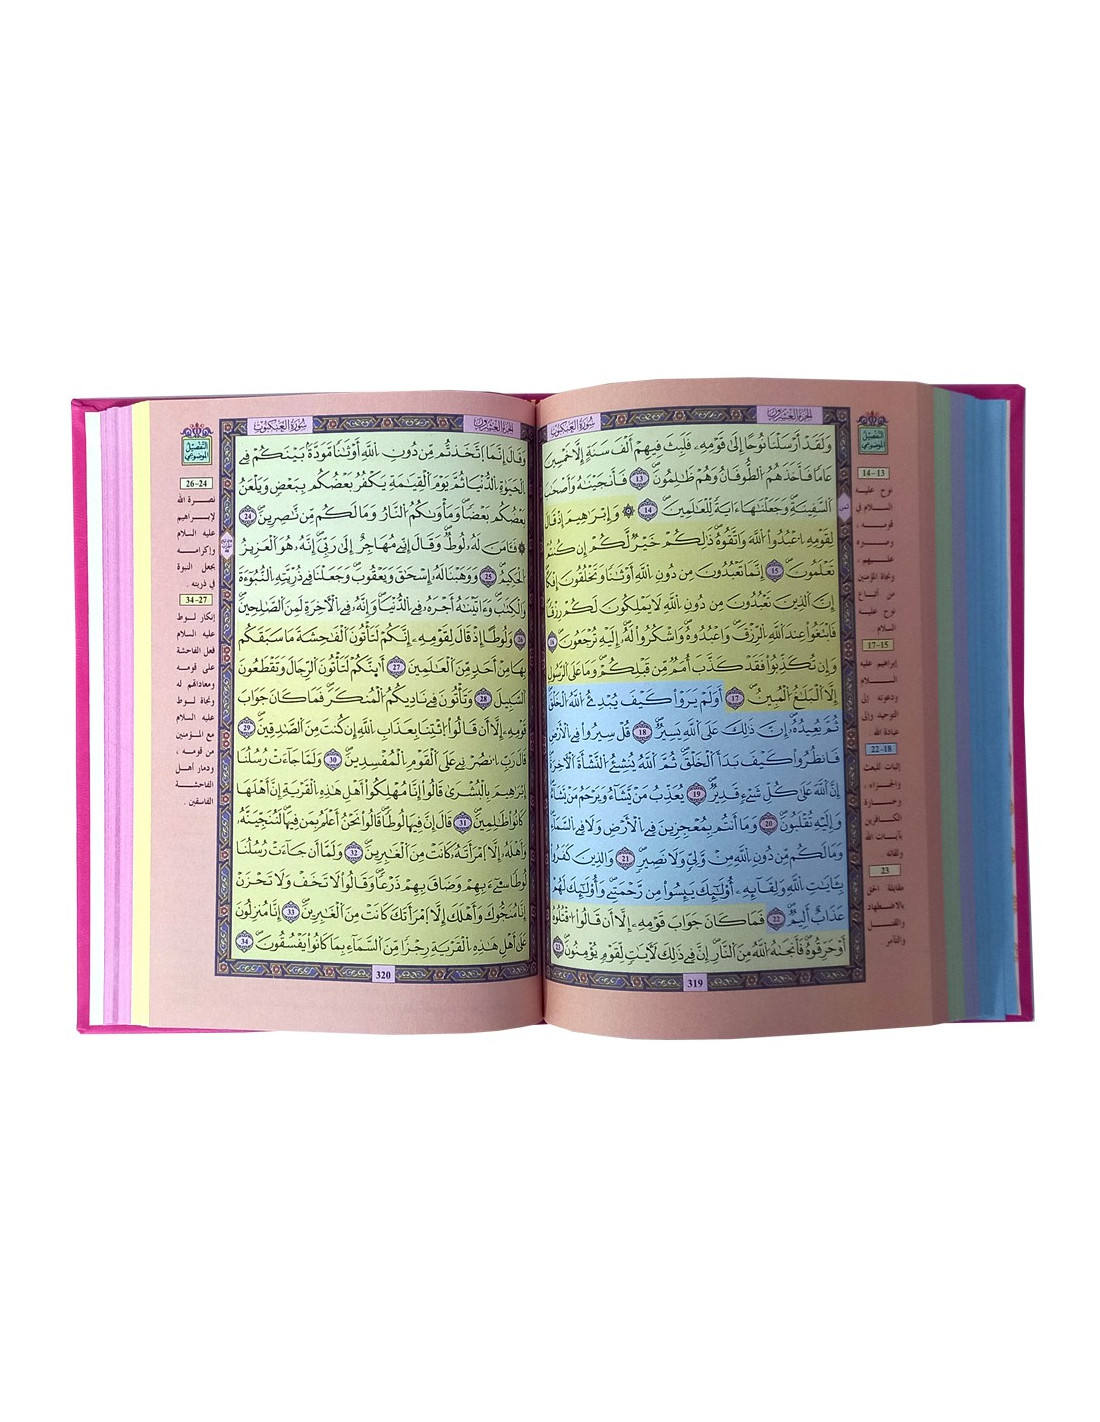 الجزء العشرون
سورة العنكبوت
وَلَقَدَ اَرْسَلْنَا نُوحًا اِلَىٰ قَوْمِهِۦ فَلَبِثَ فِيهِمُۥٓ أَلْفَ سَنَةٍ اِلَّا خَمْسِينَ
عَامًا فَأَخَذَهُمُ الطُّوفَانُ وَهُمْ ظَٰلِمُونَ 13 فَأَنجَيْنَٰهُ وَأَصْحَٰبَ
السَّفِينَةِ وَجَعَلْنَٰهَا ءَايَةً لِّلْعَٰلَمِينَ 14 ۞ وَإِبْرَٰهِيمَ إِذْ قَالَ
لِقَوْمِهِ اِ۟عْبُدُوا۟ اللَّهَ وَاتَّقُوهُ ذَٰلِكُمْ خَيْرٌ لَّكُمُۥٓ إِن كُنتُمْ
تَعْلَمُونَ 15 إِنَّمَا تَعْبُدُونَ مِن دُونِ اِللَّهِ أَوْثَٰنًا وَتَخْلُقُونَ إِفْكًا
اِنَّ الَّذِينَ تَعْبُدُونَ مِن دُونِ اِللَّهِ لَا يَمْلِكُونَ لَكُمْ رِزْقًا
فَابْتَغُوا۟ عِندَ اَللَّهِ الرِّزْقَ وَاعْبُدُوهُ وَاشْكُرُوا۟ لَهُۥٓ إِلَيْهِ تُرْجَعُونَ 16
وَإِن تُكَذِّبُوا۟ فَقَدْ كَذَّبَ أُمَمٌ مِّن قَبْلِكُمْ وَمَا عَلَى اَلرَّسُولِ
إِلَّا اَلْبَلَٰغُ الْمُبِينُ 17 أَوَلَمْ يَرَوْا۟ كَيْفَ يُبْدِئُ اللَّهُ الْخَلْقَ
ثُمَّ يُعِيدُهُۥٓ إِنَّ ذَٰلِكَ عَلَى اَللَّهِ يَسِيرٌ 18 قُلْ سِيرُوا۟ فِي اِلْأَرْضِ
فَانظُرُوا۟ كَيْفَ بَدَأَ اَلْخَلْقَ ثُمَّ اَللَّهُ يُنشِئُ النَّشْأَةَ اَلْأَخِرَةَ
إِنَّ اَللَّهَ عَلَىٰ كُلِّ شَيْءٍ قَدِيرٌ 19 يُعَذِّبُ مَن يَّشَآءُ وَيَرْحَمُ مَن يَّشَآءُ
وَإِلَيْهِ تُقْلَبُونَ 20 وَمَآ أَنتُم بِمُعْجِزِينَ فِي اِلْأَرْضِ وَلَا فِي اِلسَّمَآءِ
وَمَا لَكُم مِّن دُونِ اِللَّهِ مِنْ وَّلِيٍّ وَلَا نَصِيرٍ 21 وَالَّذِينَ كَفَرُوا۟
بِـَٔايَٰتِ اِللَّهِ وَلِقَآئِهِۦٓ أُو۟لَٰٓئِكَ يَئِسُوا۟ مِن رَّحْمَتِي وَأُو۟لَٰٓئِكَ لَهُمْ
عَذَابٌ اَلِيمٌ 22 فَمَا كَانَ جَوَابَ قَوْمِهِۦٓ إِلَّآ أَن قَالُوا۟ اُ۟قْتُلُوهُ
أَوْ حَرِّقُوهُ فَأَنجَىٰهُ اُللَّهُ مِنَ اَلنَّارِ إِنَّ فِي ذَٰلِكَ لَأٓيَٰتٍ لِّقَوْمٍ يُؤْمِنُونَ 23
319
التفصيل
الموضوعي
14-13
نوح عليه
السلام في
قومه ،
وصبره
عليهم ،
ونجاة المؤمنين
من أتباع
نوح عليه
السلام
17-15
إبراهيم عليه
السلام
ودعوته إلى
التوحيد وإلى
عبادة الله .
22-18
إثبات للبعث
والجزاء ،
وخسارة
الكافرين
بآيات الله
ولقائه .
23
مقابلة الحق
بالاضطهاد
والقتل
والتآمر
الجزء العشرون
سورة العنكبوت
وَقَالَ إِنَّمَا اَتَّخَذتُّم مِّن دُونِ اِللَّهِ أَوْثَٰنًا مَّوَدَّةً بَيْنَكُمْ فِي
اِلْحَيَوٰةِ اِلدُّنْيَا ثُمَّ يَوْمَ اَلْقِيَٰمَةِ يَكْفُرُ بَعْضُكُم بِبَعْضٍ وَيَلْعَنُ
بَعْضُكُم بَعْضًا وَمَأْوَىٰكُمُ النَّارُ وَمَا لَكُم مِّن نَّٰصِرِينَ 24
۞ فَـَٔامَنَ لَهُۥ لُوطٌ وَقَالَ إِنِّي مُهَاجِرٌ اِلَىٰ رَبِّيَ إِنَّهُۥ هُوَ اَلْعَزِيزُ
اُلْحَكِيمُ 25 وَوَهَبْنَا لَهُۥٓ إِسْحَٰقَ وَيَعْقُوبَ وَجَعَلْنَا فِي ذُرِّيَّتِهِ اِلنُّبُوٓءَةَ
وَالْكِتَٰبَ وَءَاتَيْنَٰهُ أَجْرَهُۥ فِي اِلدُّنْيَا وَإِنَّهُۥ فِي اِلْأَخِرَةِ لَمِنَ اَلصَّٰلِحِينَ
26 وَلُوطًا إِذْ قَالَ لِقَوْمِهِۦٓ إِنَّكُمْ لَتَأْتُونَ اَلْفَٰحِشَةَ مَا سَبَقَكُم
بِهَا مِنَ اَحَدٍ مِّنَ اَلْعَٰلَمِينَ 27 أَئِنَّكُمْ لَتَأْتُونَ اَلرِّجَالَ وَتَقْطَعُونَ
اَلسَّبِيلَ 28 وَتَأْتُونَ فِي نَادِيكُمُ اُلْمُنكَرَ فَمَا كَانَ جَوَابَ
قَوْمِهِۦٓ إِلَّآ أَن قَالُوا۟ اُ۟ئْتِنَا بِعَذَابِ اِللَّهِ إِن كُنتَ مِنَ اَلصَّٰدِقِينَ 29
قَالَ رَبِّ اِ۟نصُرْنِي عَلَى اَلْقَوْمِ اِلْمُفْسِدِينَ 30 وَلَمَّا جَآءَتْ رُسُلُنَآ
إِبْرَٰهِيمَ بِالْبُشْرَىٰ قَالُوٓا۟ إِنَّا مُهْلِكُوٓا۟ أَهْلِ هَٰذِهِ اِلْقَرْيَةِ إِنَّ أَهْلَهَا
كَانُوا۟ ظَٰلِمِينَ 31 قَالَ إِنَّ فِيهَا لُوطًا قَالُوا۟ نَحْنُ أَعْلَمُ بِمَن فِيهَا لَنُنَجِّيَنَّهُۥ
وَأَهْلَهُۥٓ إِلَّا اَمْرَأَتَهُۥ كَانَتْ مِنَ اَلْغَٰبِرِينَ 32 وَلَمَّآ أَن جَآءَتْ رُسُلُنَا
لُوطًا سِيٓءَ بِهِمْ وَضَاقَ بِهِمْ ذَرْعًا وَقَالُوا۟ لَا تَخَفْ وَلَا تَحْزَنِ
اِنَّا مُنَجُّوكَ وَأَهْلَكَ إِلَّا اَمْرَأَتَكَ كَانَتْ مِنَ اَلْغَٰبِرِينَ 33 إِنَّا مُنزِلُونَ
عَلَىٰٓ أَهْلِ هَٰذِهِ اِلْقَرْيَةِ رِجْزًا مِّنَ اَلسَّمَآءِ بِمَا كَانُوا۟ يَفْسُقُونَ 34
320
التفصيل
الموضوعي
26-24
نصرة الله
لإبراهيم
عليه السلام
وإكرامه
بجعل النبوة
في ذريته .
34-27
إنكار لوط
عليه السلام
فعل الفاحشة
على قومه
ومعاداتهم له
ونجاة لوط
عليه السلام
مع المؤمنين
من قومه ،
ودمار أهل
الفاحشة
الفاسقين .